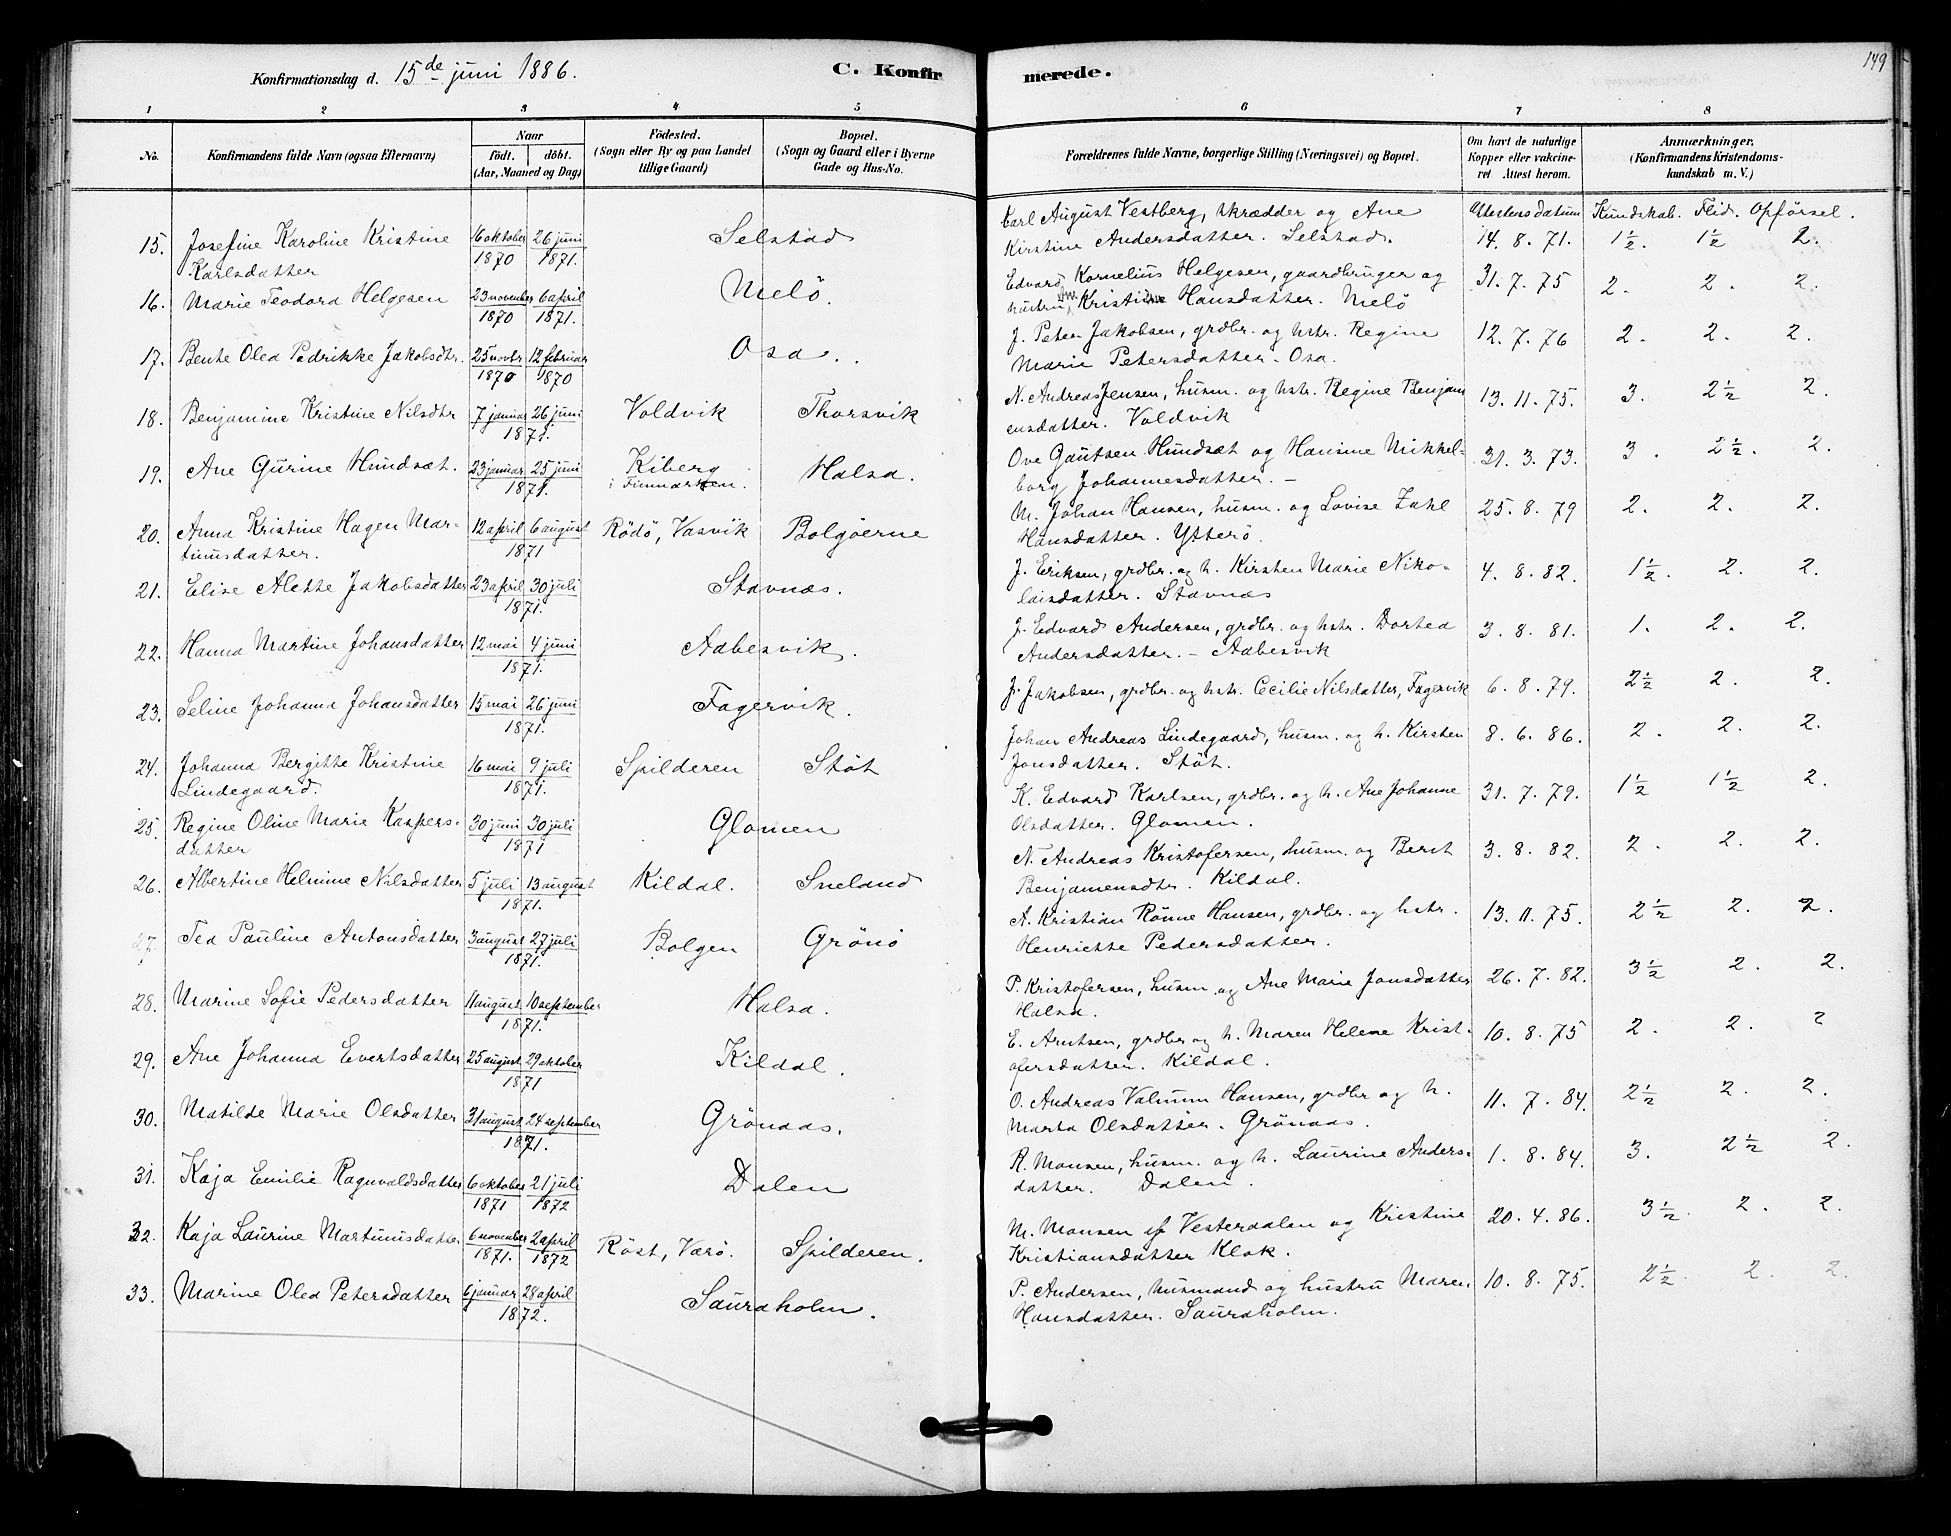 149
Konfirmationsdag d. 15de juni 1886.
C. Konfirmerede.
1 2 3 4 5 6 7 8
No.
Konfirmandens fulde Navn (ogsaa Efternavn)
Naar
födt. döbt.
(Aar, Maaned og Dag)
Födested.
(Sogn eller By og paa Landet
tillige Gaard)
Bopæl.
(Sogn og Gaard eller i Byerne
Gade og Hus-No.
Forældrenes fulde Navne, borgerlige Stilling (Næringsvei) og Bopæl.
Om havt de naturlige
Kopper eller vakcine-
ret Attest herom.
Anmærkninger,
(Konfirmandens Kristendoms-
kundskab m. V.)
Attestens datum Kundskab. Flid. Opførsel.
15. Josefine Karoline Kristine Karlsdatter 16 oktober 1870 26 juni 1871. Selstad
Carl August Vestberg, skrædder og Ane
Kirstine Andersdatter. Selstad. 14. 8. 71. 1½. 1½ 2.
16. Marie Teodora Helgesen 23 november 1870 6 april 1871. Melö.
Edvard Kornelius Helgesen, gaardbruger og
hustru Kristine Hansdatter. Melö 31. 7. 75 2. 2. 2.
17. Bente Olea Pedrikke Jakobsdtr. 25 novbr 1870 12 februar 1870 Osa.
J. Peter Jakobsen, grdbr. og hstr. Regine
Marie Petersdatter. Osa. 12. 7. 76 2. 2. 2.
18. Benjamine Kristine Nilsdtr 7 januar 26 juni 1871. Voldvik Thorsvik
N. Andreas Jensen, husm. og hstr. Regine Benjam
ensdatter. Voldvik 13. 11. 75. 3. 2½ 2.
19. Ane Gurine Hundsæt. 23 januar 25 juni 1871. Kiberg i Finmarken. Halsa.
Ove Gautsen Hundsæt og Hansine Mikkel-
borg Johannesdatter. — 31. 3. 73. 3. 2½. 2.
20. Anna Kristine Hagen Mar-
tinusdatter. 12 april 6 august 1871 Rödö, Vasvik Bolgöerne
M. Johan Hansen, husm. og Lovise Zahl
Hansdatter. Ytterö. 25. 8. 79 2. 2. 2.
21. Elise Alette Jakobsdatter 23 april 30 juli 1871. Stavnæs.
J. Eriksen, grdbr. og h. Kirsten Marie Niko-
laisdatter. Stavnæs 4. 8. 82. 1½. 2. 2.
22. Hanna Martine Johansdatter 12 mai 4 juni 1871. Aabesvik.
J. Edvard Andersen, grdbr. og hstr. Dortea
Andersdatter. — Aabesvik 3. 8. 81. 1. 2. 2.
23. Seline Johanna Johansdatter 15 mai 26 juni 1871. Fagervik.
J. Jakobsen, grdbr. og hstr. Cecilie Nilsdatter, Fagervik 6. 8. 79. 2½ 2. 2.
24. Johanna Bergitte Kristine
Lindegaard. 16 mai 9 juli 1871. Spilderen Stöt
Johan Andreas Lindegaard, husm. og h. Kirsten
Jonsdatter. Stöt. 8. 6. 86. 2. 2. 2.
25. Regine Oline Marie Kaspers-
datter 30 juni 30 juli 1871 Glomen
K. Edvard Karlsen, grdbr. og h. Ane Johanne
Olsdatter. Glomen. 31. 7. 79. 1½ 1½ 2.
26. Albertine Helmine Nilsdatter 5 juli 13 august 1871. Kildal. Sneland
N. Andreas Kristofersen, husm. og Berit
Benjamensdtr. Kildal. 3. 8. 82. 2. 2. 2.
27. Tea Pauline Antonsdatter 3 august 27 juli 1871. Bolgen Grönö
A. Kristian Rönne Hansen, grdbr. og hstr.
Henriette Pedersdatter. 13. 11. 75. 2½ 2. 2.
28. Marine Sofie Pedersdatter 11 august 10 september 1871. Halsa.
P. Kristofersen, husm. og Ane Marie Jonsdatter
Halsa. 26. 7. 82. 3½ 2. 2.
29. Ane Johanna Evertsdatter 25 august 29 oktober 1871 Kildal.
E. Arntsen, grdbr og h. Maren Helene Krist-
ofersdatter. Kildal. 10. 8. 75 2. 2. 2
30. Matilde Marie Olsdatter 31 august 24 september 1871. Grönaas.
O. Andreas Valnum Hansen, grdbr og h.
Marta Olsdatter. Grönaas. 11. 7. 84. 2½ 2. 2.
31. Kaja Emilie Ragnvaldsdatter 6 oktober 1871 21 juli 1872 Dalen
R. Monsen, husm. og h. Laurine Anders-
datter. Dalen. 1. 8. 84. 3. 2½ 2.
32. Kaja Laurine Martinusdatter 6 november 1871. 2 april 1872 Röst, Værö. Spilderen.
M. Monsen Vesterdalen og Kristine
Kristiansdatter Klok. 20. 4. 86. 3½. 2. 2.
33. Marine Olea Petersdatter 6 januar 28 april 1872. Sauraholm.
P. Andersen, husmand og hustru Maren
Hansdatter. Sauraholm. 10. 8. 75. 2½. 2. 2.